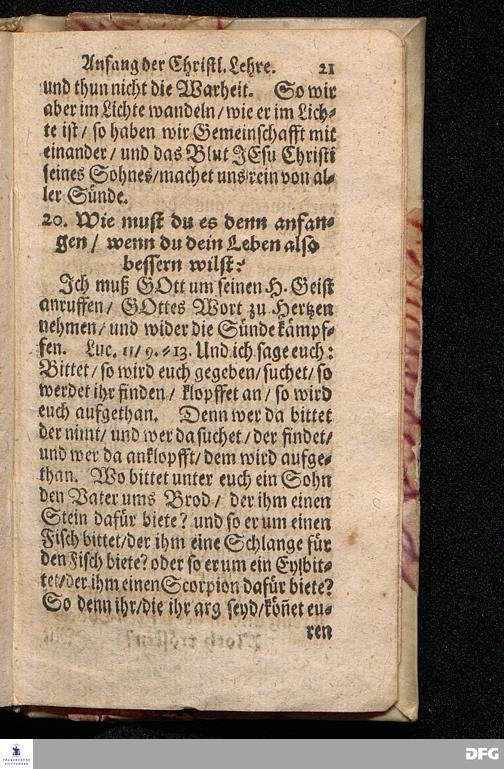 Anfang der Christl. Lehre. 21
und thun nicht die Warheit. So wir
aber im Lichte wandeln/ wie er im Lich⸗
te ist/ so haben wir Gemeinschafft mit
einander/ und das Blut JEsu Christi
seines Sohnes/machet uns rein von al⸗
ler Sünde.
20. Wie must du es denn anfan⸗
gen/ wenn du dein Leben also
bessern wilst?
Ich muß GOtt um seinen H. Geist
anruffen/ GOttes Wort zu Hertzen
nehmen/ und wider die Sünde kämpf⸗
fen. Luc. 11/9.⸗13. Und ich sage euch:
Bittet/ so wird euch gegeben/ suchet/ so
werdet ihr finden/ klopffet an/ so wird
euch aufgethan. Denn wer da bittet
der nimt/ und wer da suchet/ der findet/
und wer da anklopfft/ dem wird aufge⸗
than. Wo bittet unter euch ein Sohn
den Vater ums Brod/ der ihm einen
Stein dafür biete? und so er um einen
Fisch bittet/der ihm eine Schlange für
den Fisch biete? oder so er um ein Ey bit⸗
tet/der ihm einen Scorpion dafür biete?
So denn ihr/die ihr arg seyd/ köñet eu⸗
ren
FRANCKESCHE
STIFTUNGEN
DFG